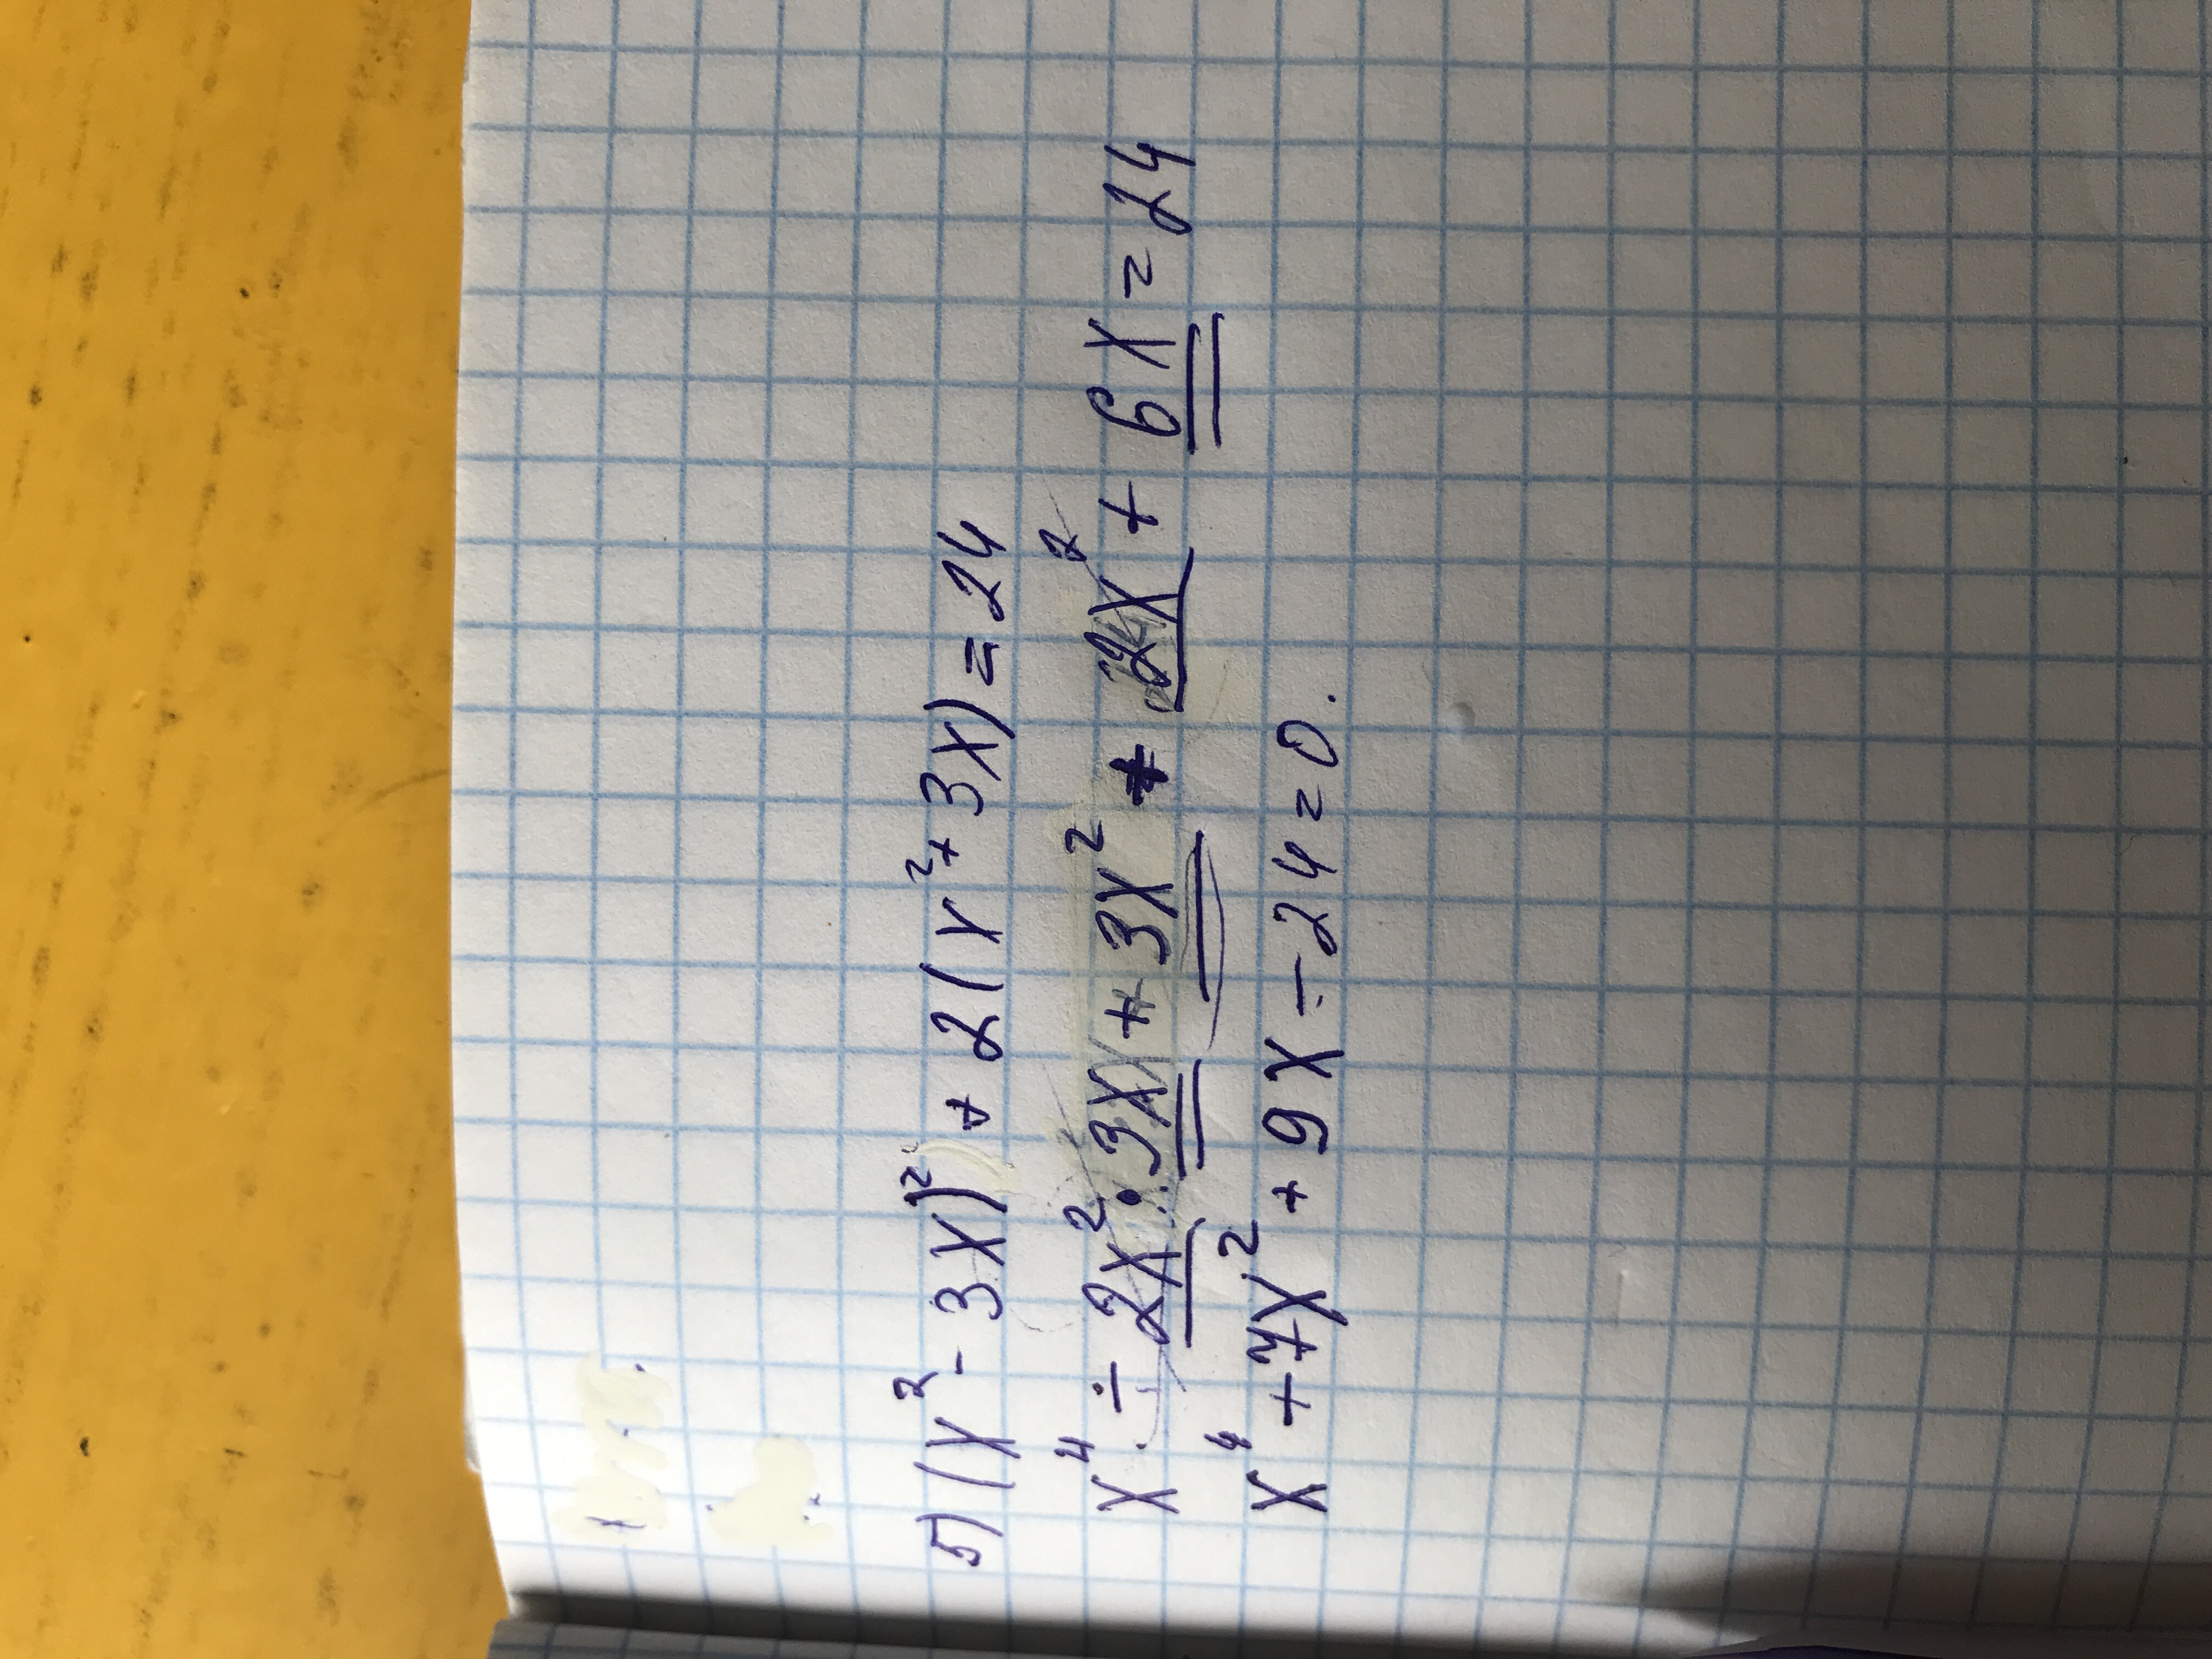 5) (x² - 3x)² + 2(x² + 3x) = 24
x⁴ ÷ 2x² · 3x + 3x² + 2x² + 6x = 24
x⁴ + 7x² + 9x ÷ 24 = 0.